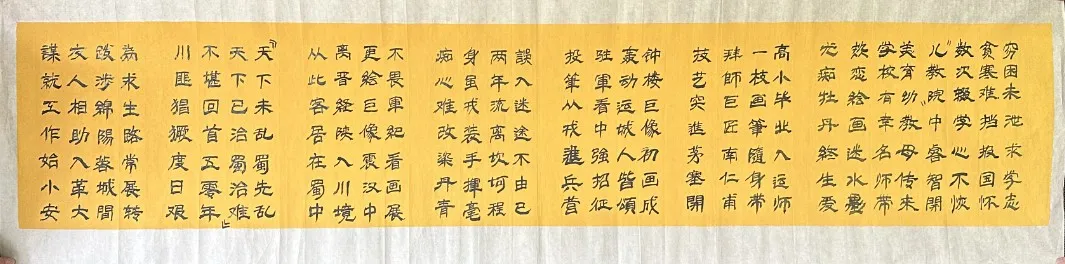 穷困未泄求学志
贫寒难挡报国怀
数次辍学心不恢
儿教院中睿智開
美育幼教母传来
学校有幸名师带
热恋绘画迷水墨
心痴牡丹終生爱
高小毕业入运师
一枝画筆隨身带
拜師巨匠南仁甫
技艺突進茅塞開
钟楼巨像初画成
轰动运城人皆頌
駐軍看中強招征
投筆从戎進兵营
誤入迷途不由己
两年流离坎坷程
身虽戎装手揮毫
痴心难改染丹青
不畏軍紀看画展
更絵巨像震汉中
离晋经陕入川境
从此客居在蜀中
『天下未乱蜀先乱
天下已治蜀治难』
不堪回首五零年
川匪猖獗度日艰
為求生路常展转
跋涉綿陽蓉城間
友人相助入革大
謀就工作始小安